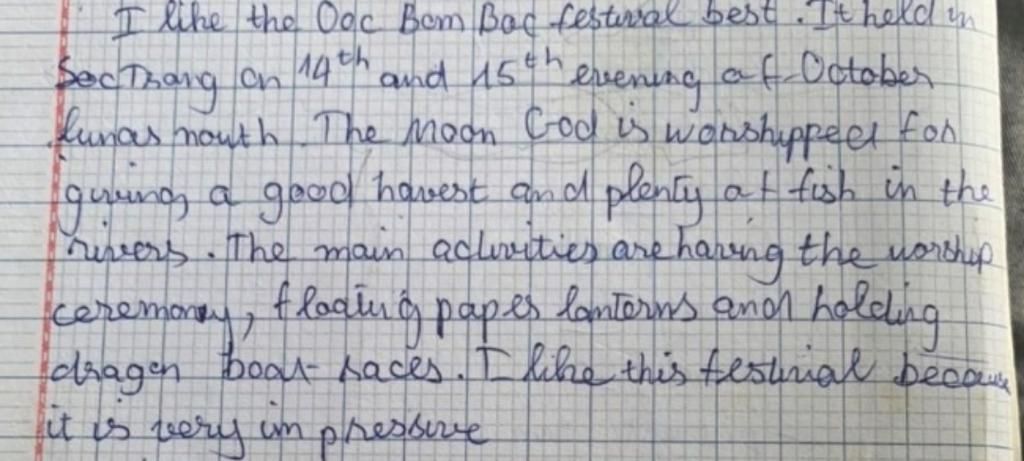 I like the Ooc Bom Boc festival best. It held in
Soc Trang on 14th and 15th evening of October
lunar mouth. The Moon God is worshipped for
giving a good havest and plenty of fish in the
rivers. The main activities are having the worship
ceremony, floating paper lanterns and holding
dragon boat races. I like this festival because
it is very im pressive